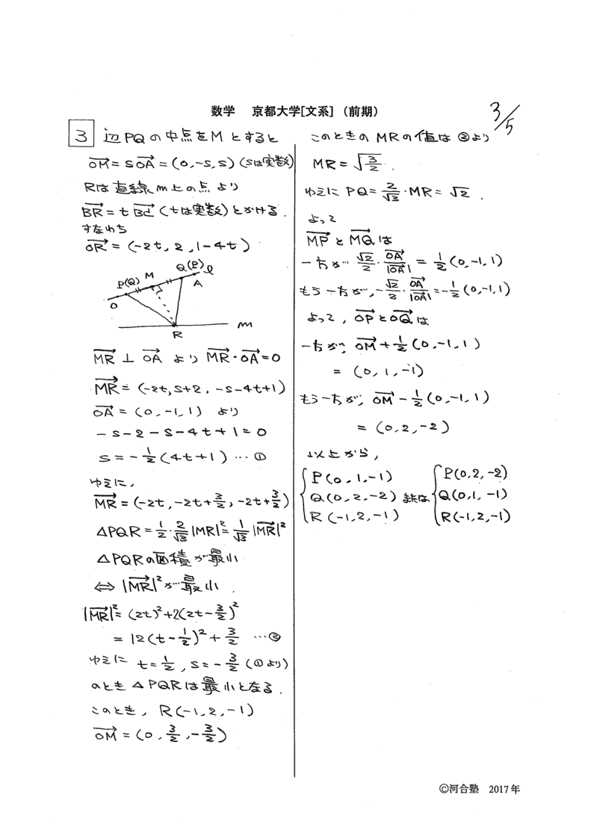 数学 京都大学[文系] (前期)
3/5
3 辺PQの中点をMとすると
OM = sOA = (0, -s, s) (sは実数)
Rは直線m上の点より
BR = tBC (tは実数)とかける.
すなわち
OR = (-2t, 2, 1-4t)
O P(Q) M Q(P) A l
R m
MR ⊥ OA より MR・OA = 0
MR = (-2t, s+2, -s-4t+1)
OA = (0, -1, 1) より
-s-2-s-4t+1=0
s = -1/2(4t+1) … ①
ゆえに,
MR = (-2t, -2t+3/2, -2t+3/2)
△PQR = 1/2・2/√3|MR|² = 1/√3|MR|²
△PQRの面積が最小
⇔ |MR|²が最小
|MR|² = (2t)²+2(2t-3/2)²
= 12(t-1/2)²+3/2 … ②
ゆえに t=1/2, s=-3/2 (①より)
のとき △PQRは最小となる.
このとき, R(-1, 2, -1)
OM = (0, 3/2, -3/2)
このときのMRの値は②より
MR = √3/2.
ゆえに PQ = 2/√3・MR = √2.
よって
MPとMQは
一方が √2/2・OA/|OA| = 1/2(0, -1, 1)
もう一方が, -√2/2・OA/|OA| = -1/2(0, -1, 1)
よって, OPとOQは
一方が, OM+1/2(0, -1, 1)
= (0, 1, -1)
もう一方が, OM-1/2(0, -1, 1)
= (0, 2, -2)
以上から,
P(0, 1, -1) P(0, 2, -2)
Q(0, 2, -2) または Q(0, 1, -1)
R(-1, 2, -1) R(-1, 2, -1)
©河合塾 2017年